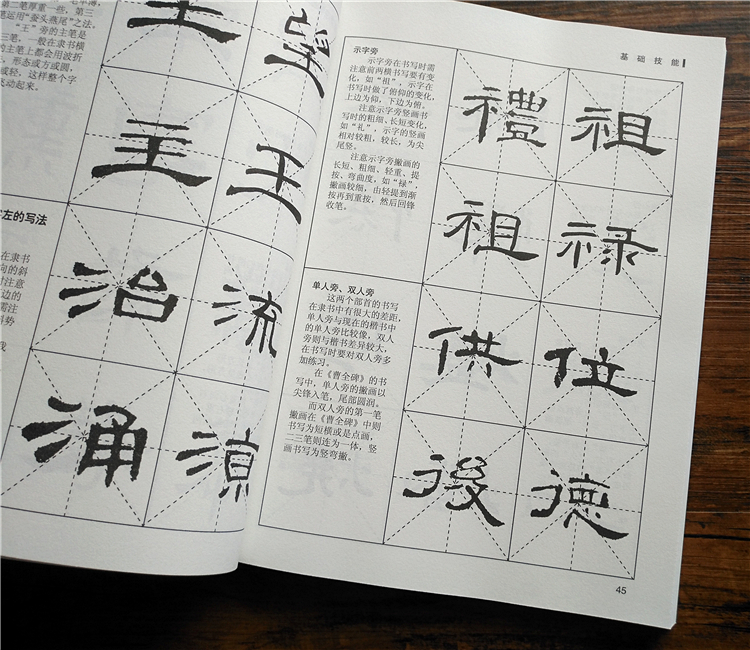 第二笔厚重一些，第三
笔运用“蚕头燕尾”之法。
“王”旁的主笔是
三笔，一般在隶书横
的主笔上都会用波折
，形态或方或圆，
或轻，这样整个字
飞动起来。
王
望
主
王
左的写法
在隶书
向的斜
时注意
边的
需注
斜势
我
治
流
涌
凉
基础技能
示字旁
示字旁在书写时需
注意前两横书写要有变
化，如“祖”，示字在
书写时做了俯仰的变化，
上边为仰，下边为俯。
注意示字旁竖画书
写时的粗细、长短变化，
如“礼”，示字的竖画
相对较粗，较长，为尖
尾竖。
注意示字旁撇画的
长短、粗细、轻重、提
按、弯曲度，如“禄”，
撇画较细，由轻提到渐
按再到重按，然后回锋
收笔。
禮 祖
祖 禄
单人旁、双人旁
这两个部首的书写
在隶书中有很大的差距，
单人旁与现在的楷书中
的单人旁比较像，双人
旁则与楷书差异较大，
在书写时要对双人旁多
加练习。
在《曹全碑》的书
写中，单人旁的撇画以
尖锋入笔，尾部圆润。
而双人旁的第一笔
撇画在《曹全碑》中则
书写为短横或是点画，
二三笔则连为一体，竖
画书写为竖弯撇。
供 位
後 德
45